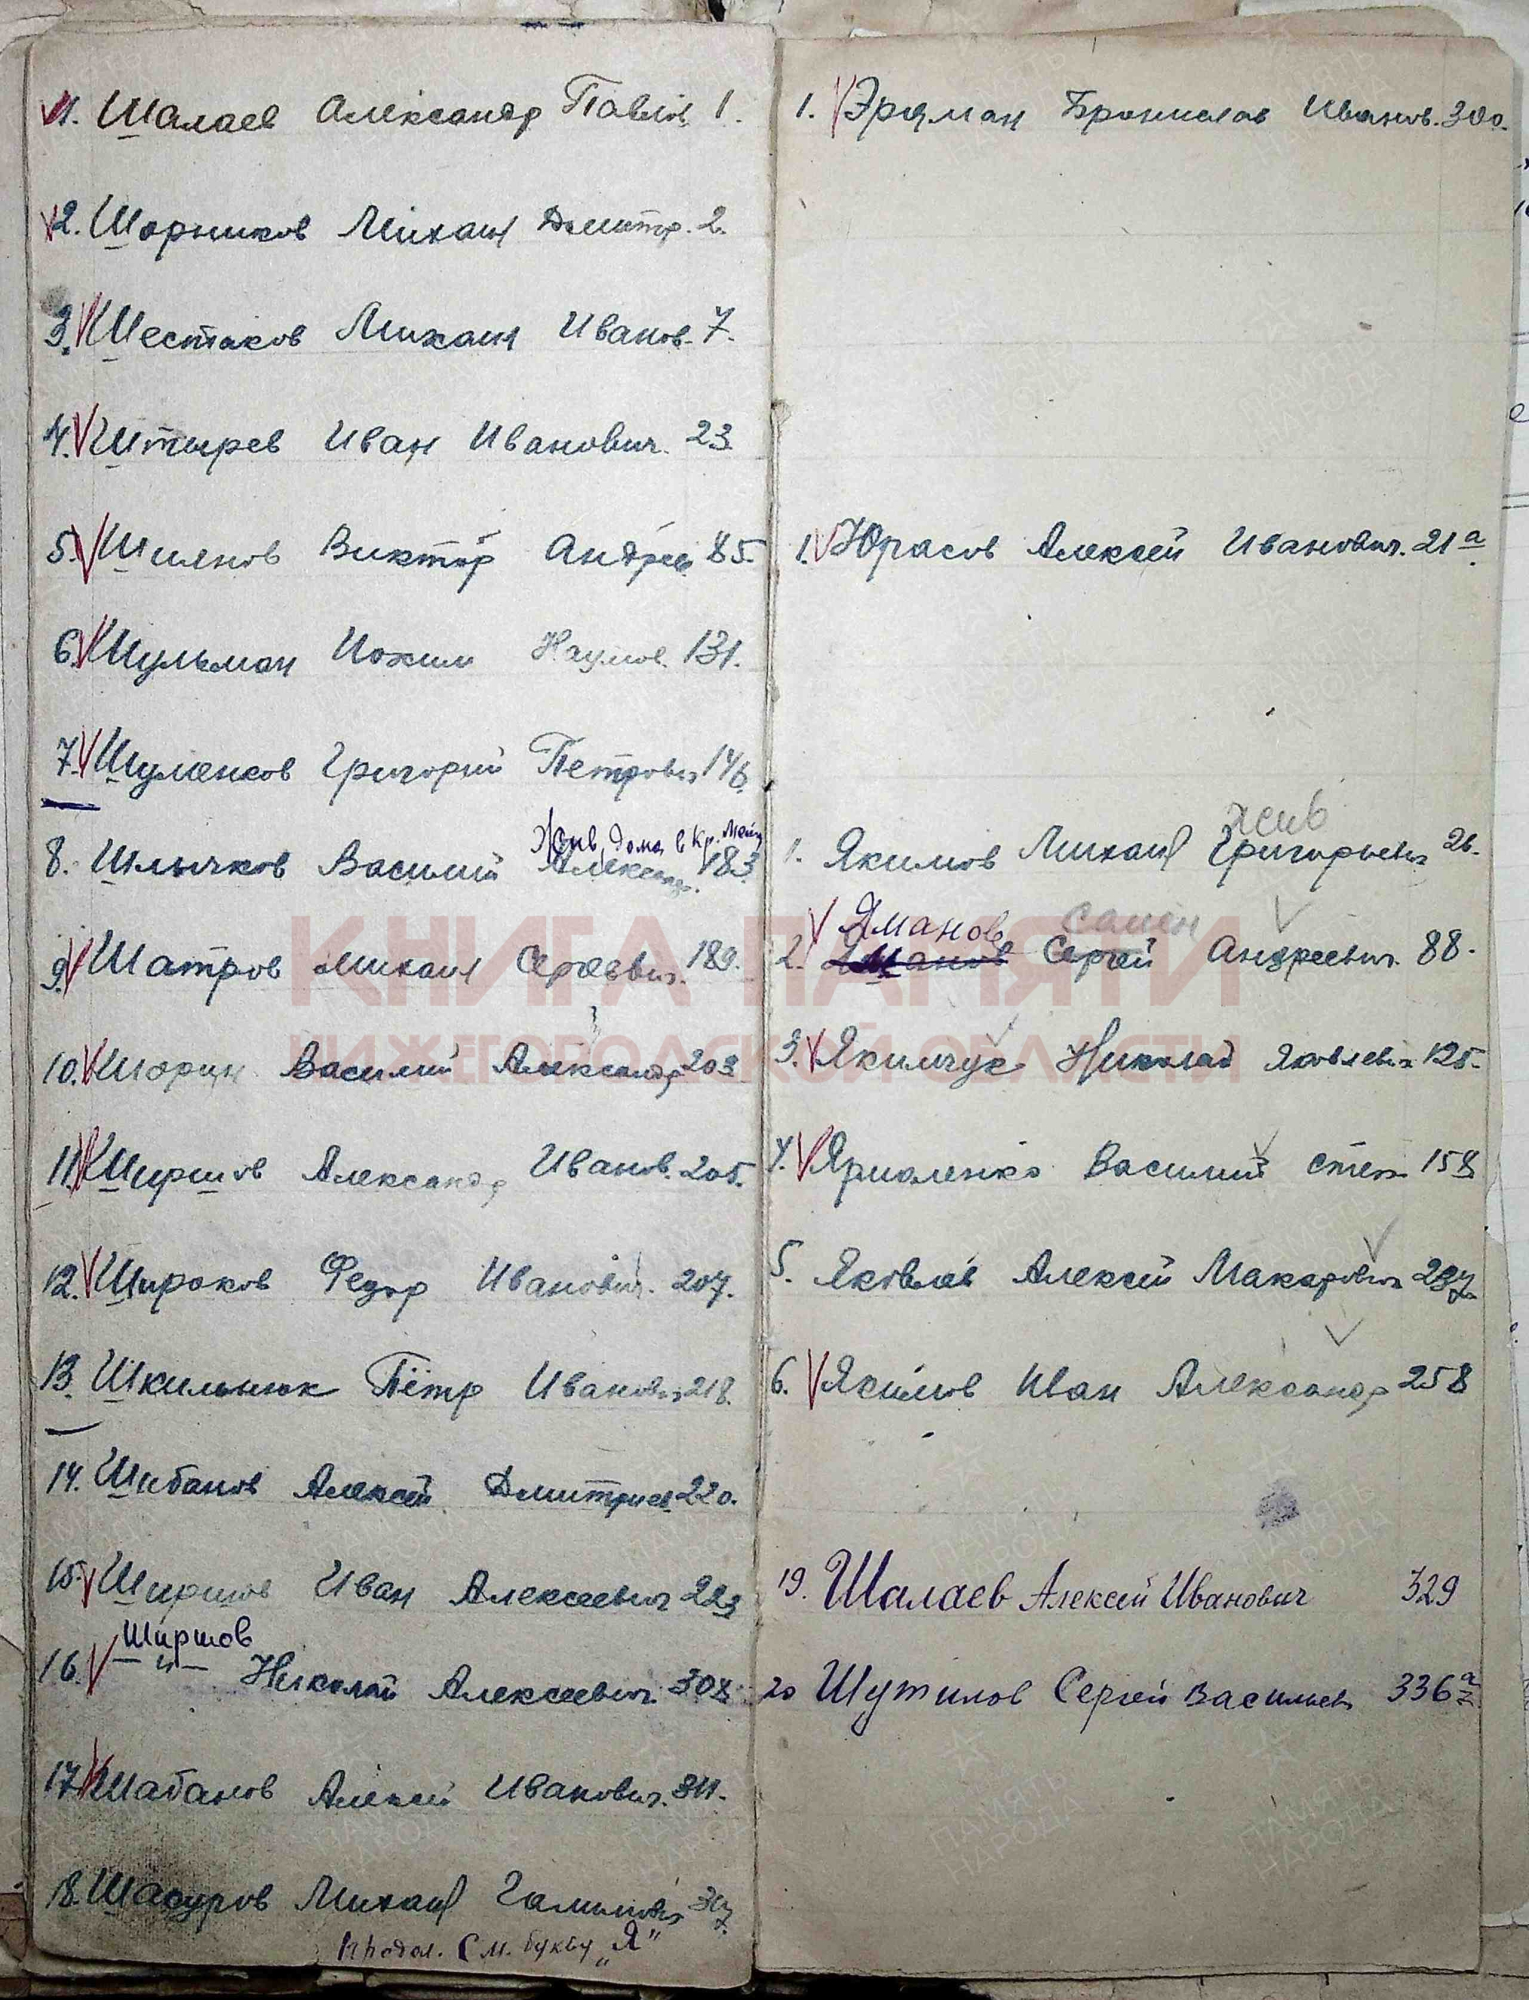 1. Шалаев Александр Павлов. 1.
2. Шорников Михаил Дмитр. 2.
3. Шестаков Михаил Иванов. 7.
4. Штырев Иван Иванович. 23
5. Шилнов Виктор Андреев 85.
6. Шульман Иохим Наумов. 131.
7. Шуменков Григорий Петрович 146.
Жив, дома в Кр.
8. Шлычков Василий Александр. 183.
9. Шатров Михаил Сергеевич. 189.
10. Шорин Василий Александр 203
11. Ширшов Александр Иванов. 205.
12. Широков Федор Иванович. 207.
13. Шкильнюк Пётр Иванович 218.
14. Шибанов Алексей Дмитриев. 220.
15. Ширшов Иван Алексеевич 223
Ширшов
16. — " — Николай Алексеевич. 308
17. Шабанов Алексей Иванович. 311.
18. Шакуров Михаил
Продол. См. букву „Я"
1. Эрдман Бронислав Иванов. 300.
1. Юрасов Алексей Иванович. 21а
жив
1. Якимов Михаил Григорьевич 26.
Яманов Семён
2. Аманов Сергей Андреевич. 88.
3. Якимчук Николай Яковлевич 125.
4. Ярмоленко Василий Степ 158
5. Яковлев Алексей Макарович 237.
6. Якимов Иван Александр 258
19. Шалаев Алексей Иванович 329
20 Шутилов Сергей Васильев 336а
КНИГА ПАМЯТИ
НИЖЕГОРОДСКОЙ ОБЛАСТИ
ПАМЯТЬ НАРОДА